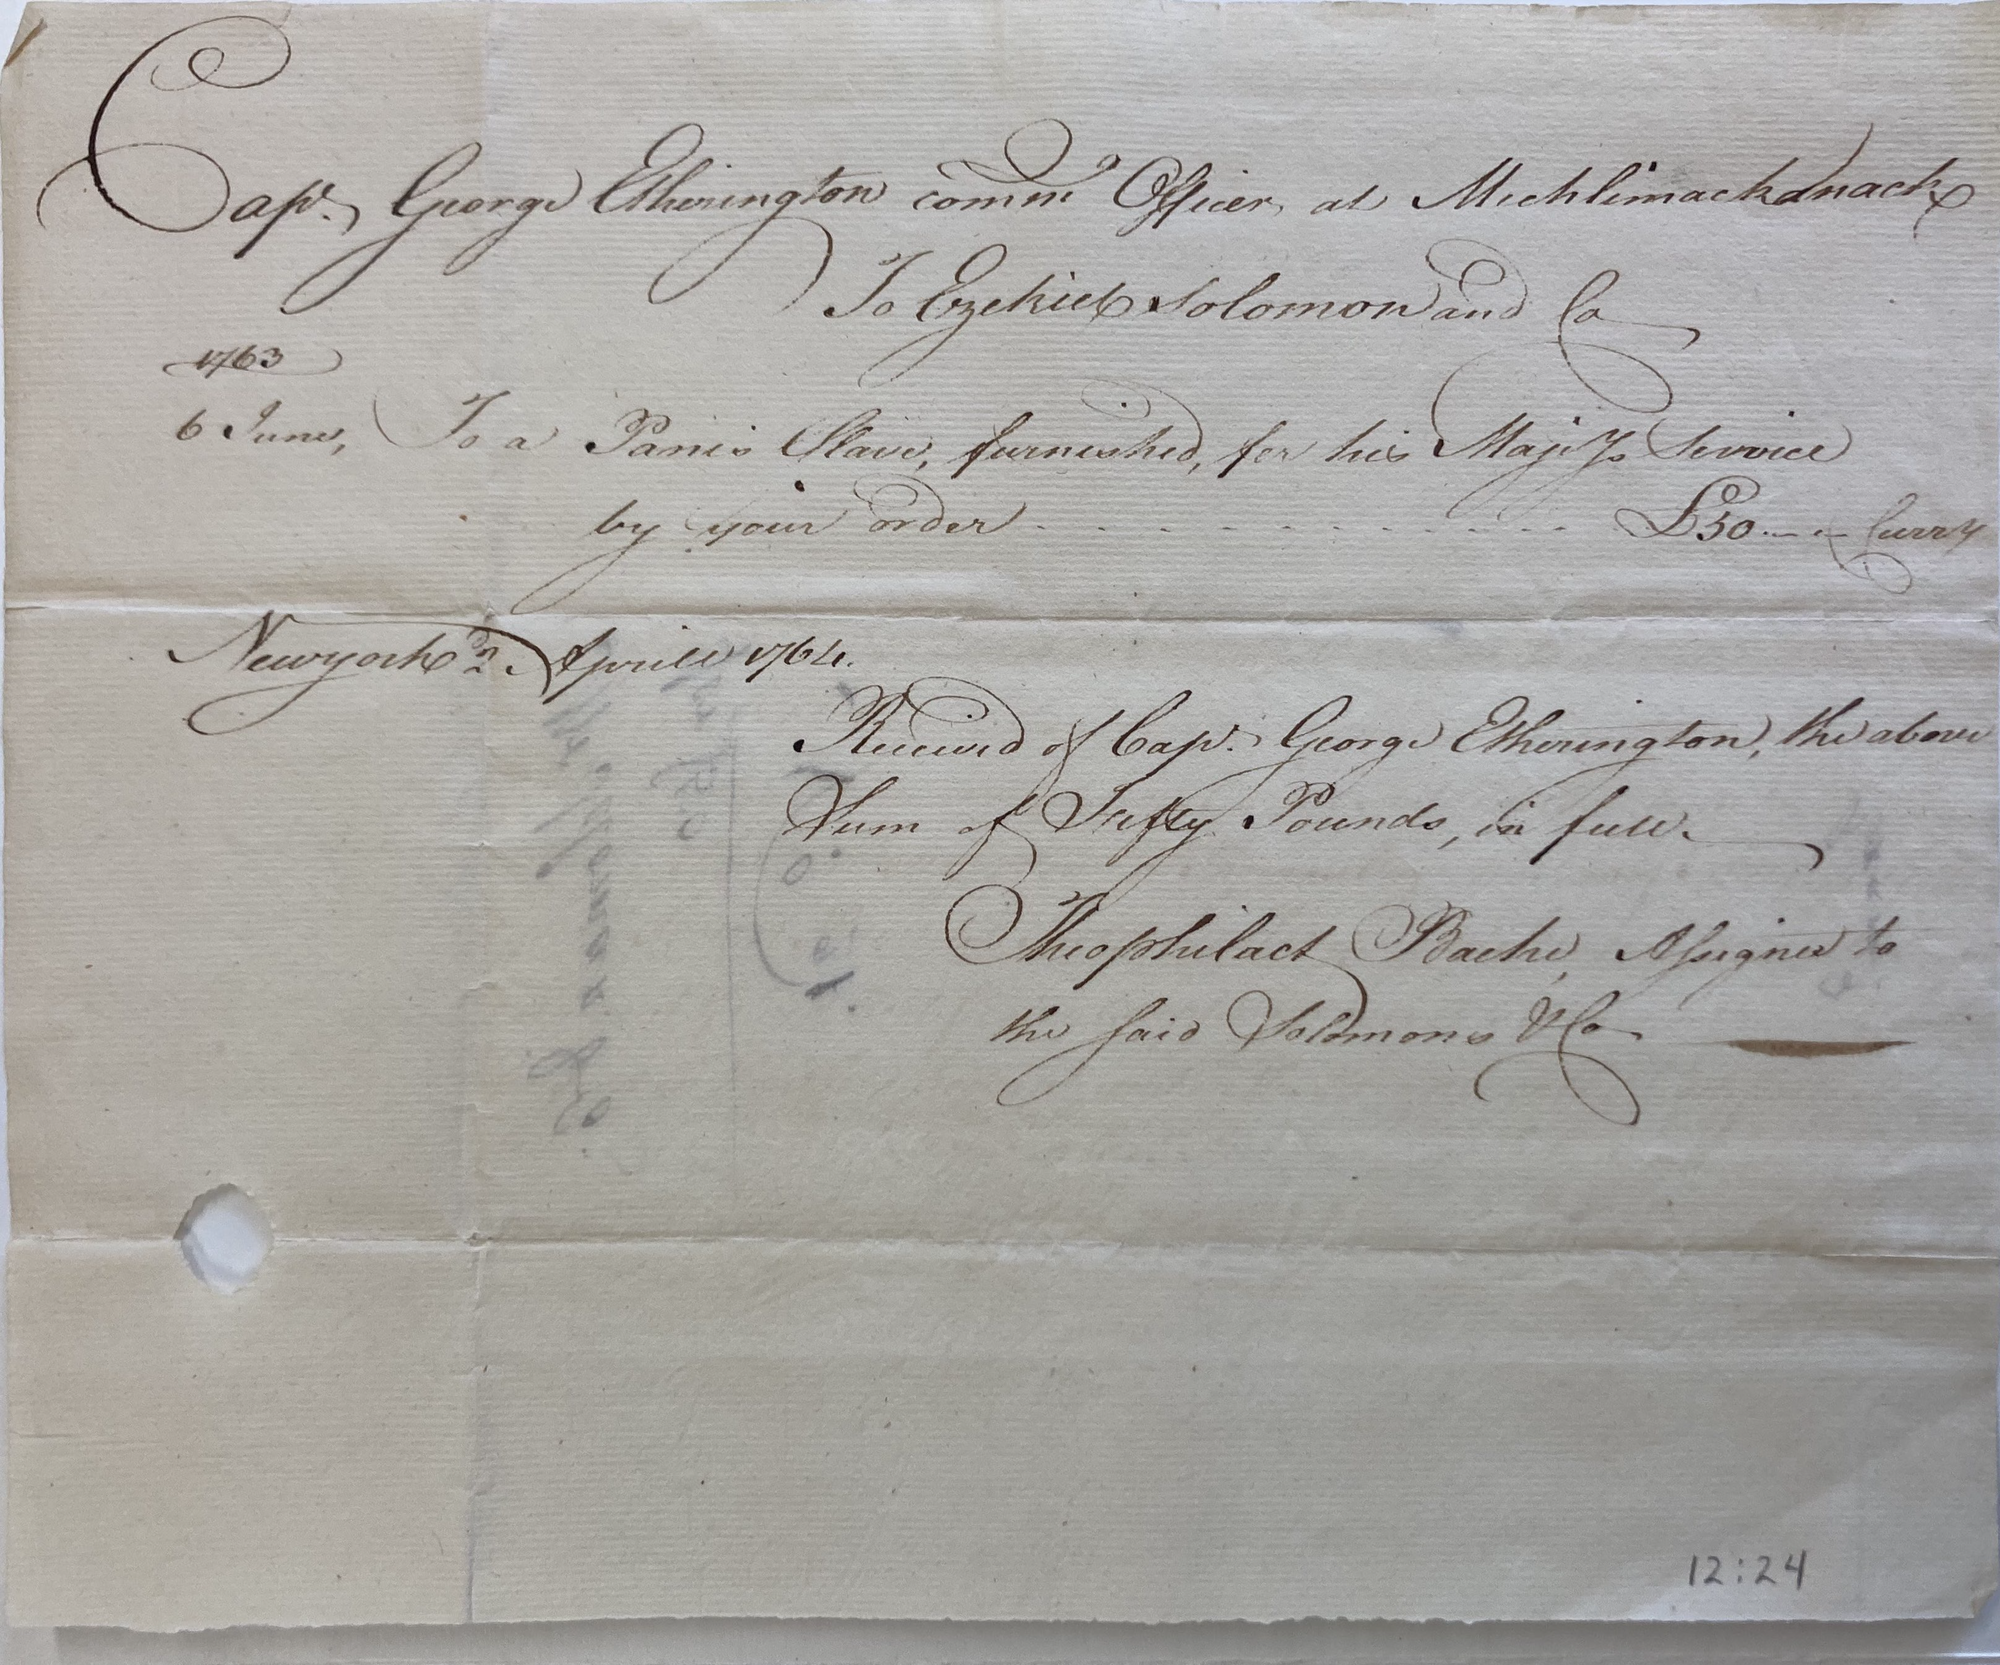 Capt. George Etherington commg Officer at Michlimackanack
To Ezekiel Solomon and Co
1763
6 June, To a Panis Slave, furnished, for his Majtys Service
by your order - - - - - - - - - - - - £50.—"— Curry
Newyork 2d. Aprill 1764.
Received of Capt. George Etherington, the above
Sum of Fifty Pounds, in full.
Theophilact Bache, Assignee to
the said Solomons & Co
12:24